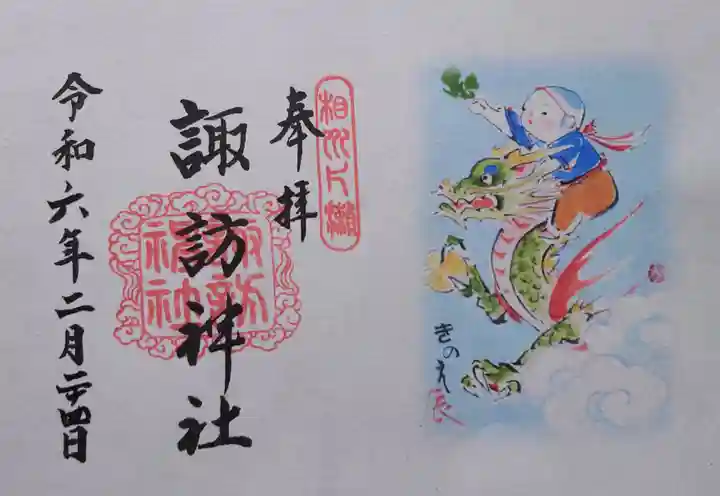 相州片瀬
奉拝
諏訪神社
諏訪
神社
令和六年二月二十四日
きのえ辰